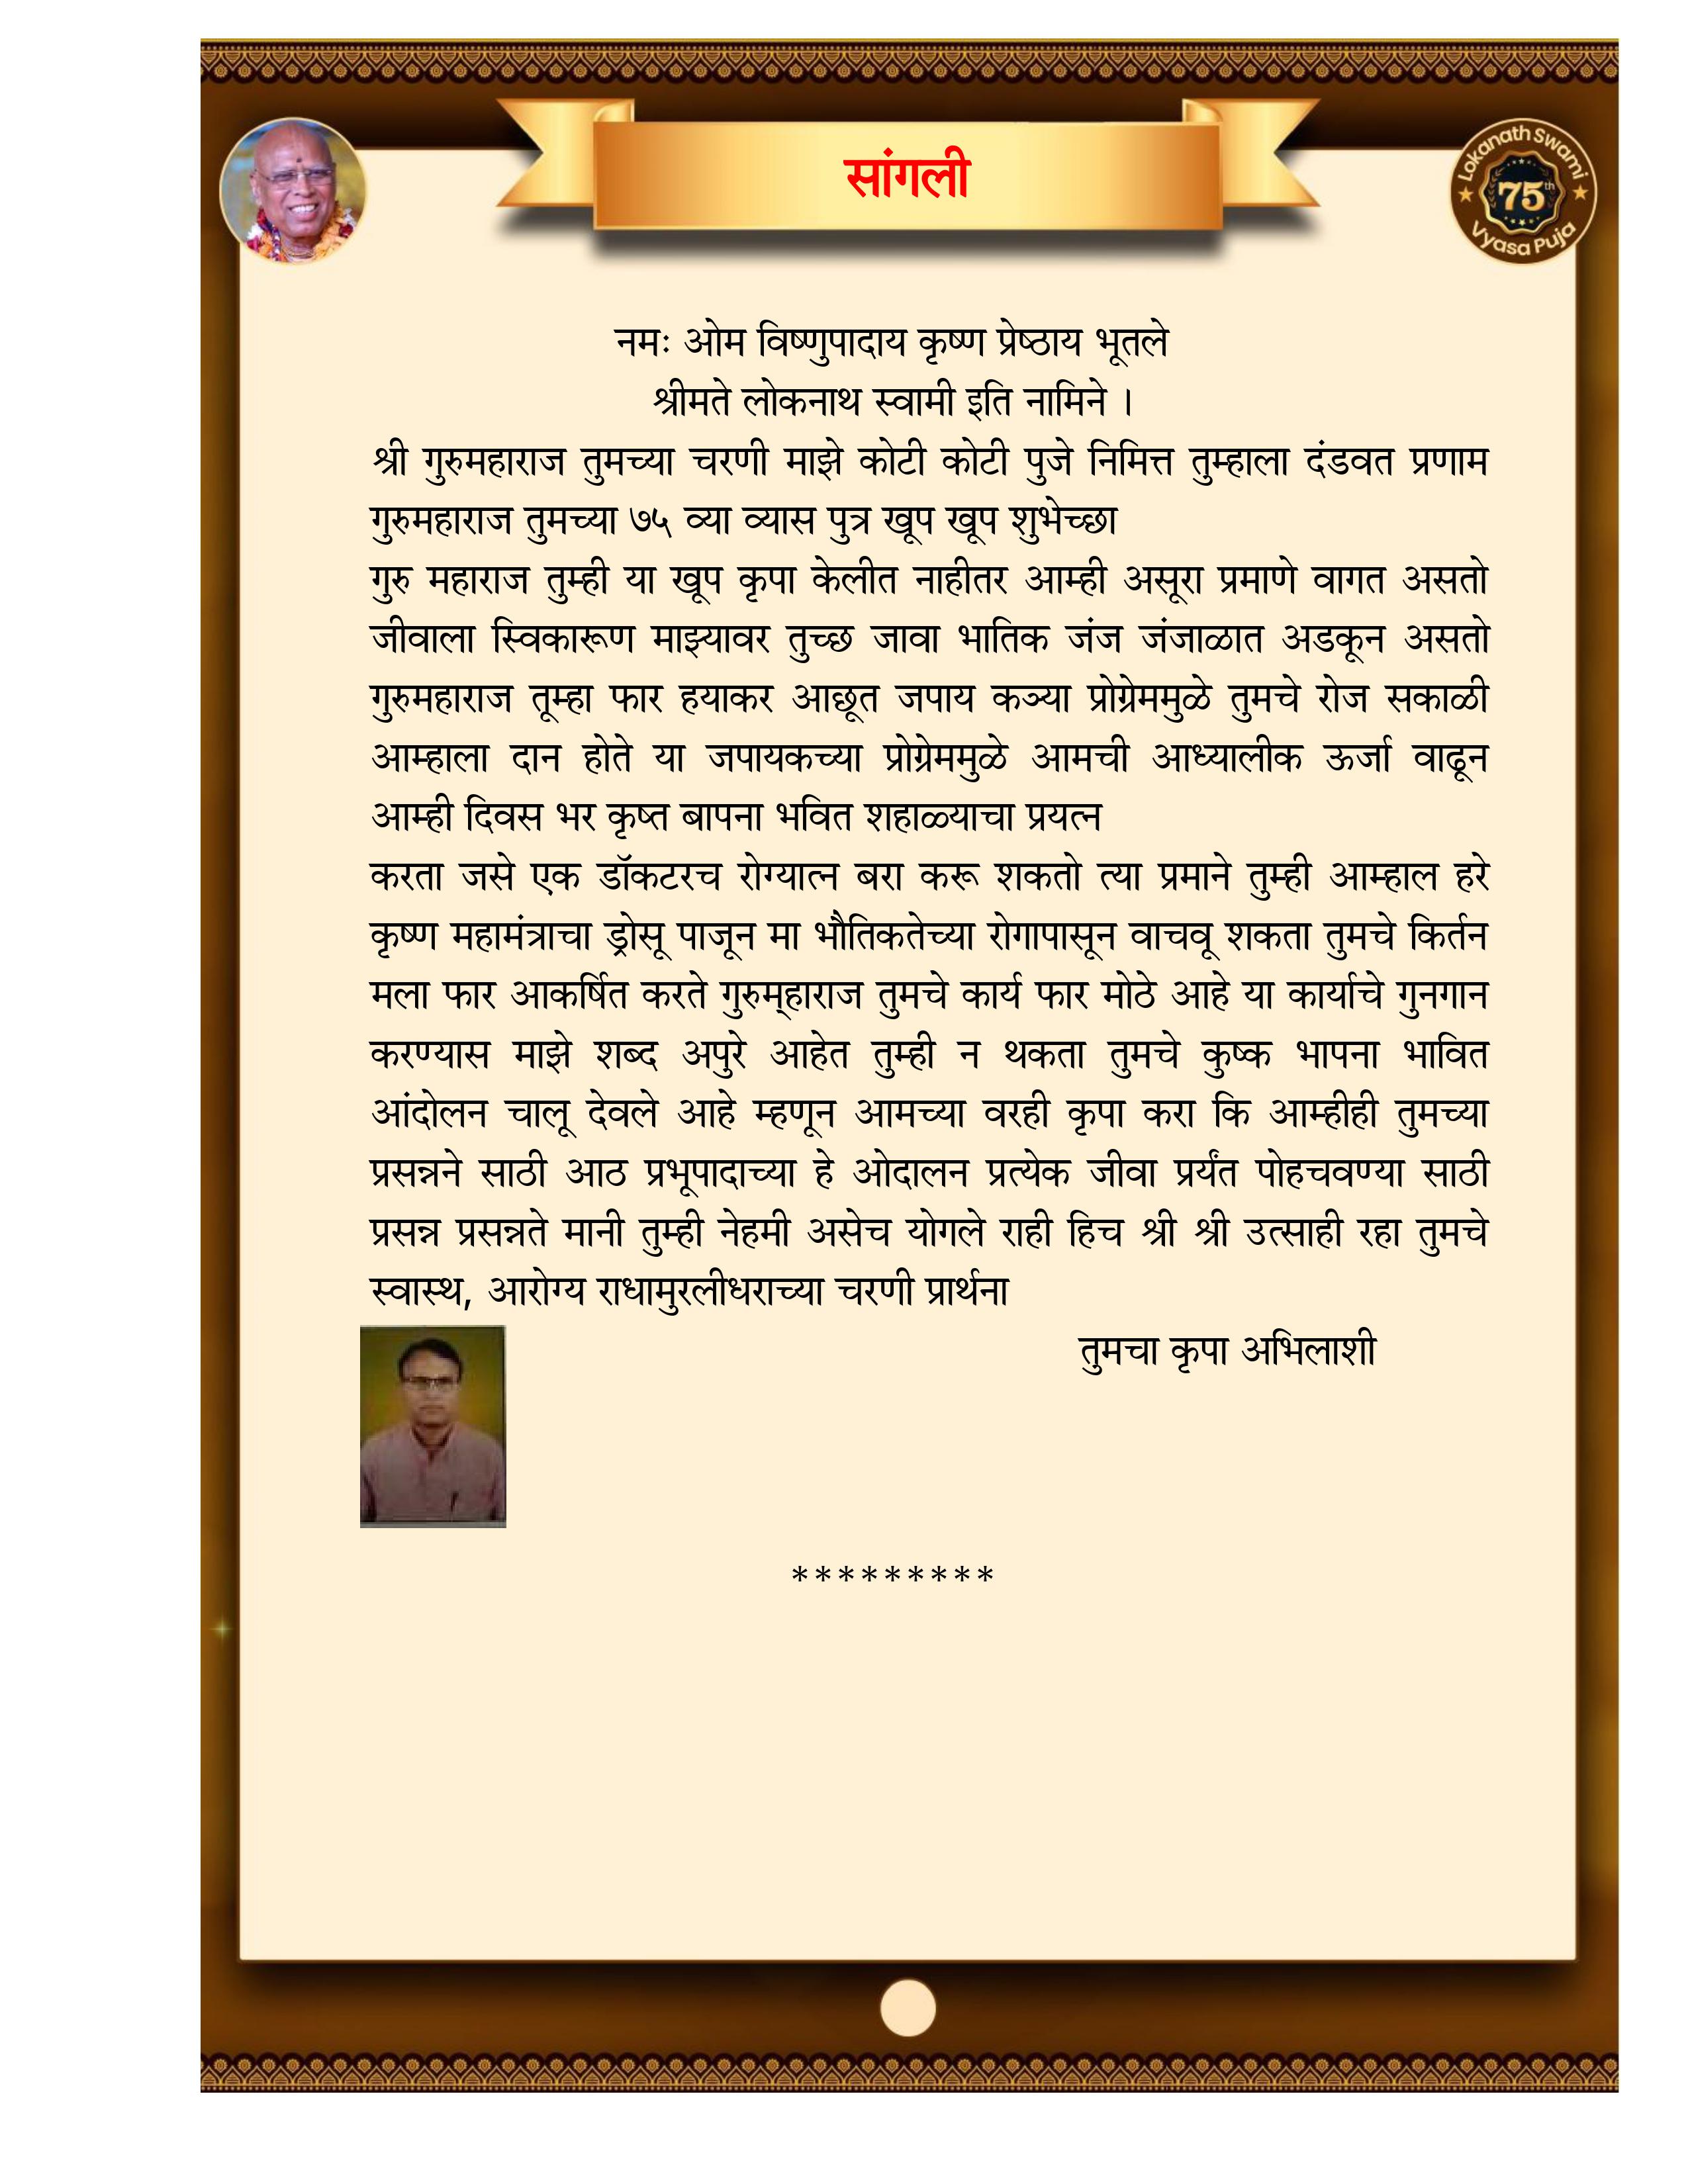 सांगली
Lokanath Swami
75th
Vyasa Puja
नमः ओम विष्णुपादाय कृष्ण प्रेष्ठाय भूतले
श्रीमते लोकनाथ स्वामी इति नामिने ।
श्री गुरुमहाराज तुमच्या चरणी माझे कोटी कोटी पुजे निमित्त तुम्हाला दंडवत प्रणाम
गुरुमहाराज तुमच्या ७५ व्या व्यास पुत्र खूप खूप शुभेच्छा
गुरु महाराज तुम्ही या खूप कृपा केलीत नाहीतर आम्ही असूरा प्रमाणे वागत असतो
जीवाला स्विकारूण माझ्यावर तुच्छ जावा भातिक जंज जंजाळात अडकून असतो
गुरुमहाराज तूम्हा फार हयाकर आछूत जपाय कञ्या प्रोग्रेममुळे तुमचे रोज सकाळी
आम्हाला दान होते या जपायकच्या प्रोग्रेममुळे आमची आध्यालीक ऊर्जा वाढून
आम्ही दिवस भर कृष्त बापना भवित शहाळ्याचा प्रयत्न
करता जसे एक डॉकटरच रोग्यात्न बरा करू शकतो त्या प्रमाने तुम्ही आम्हाल हरे
कृष्ण महामंत्राचा ड्रोसू पाजून मा भौतिकतेच्या रोगापासून वाचवू शकता तुमचे किर्तन
मला फार आकर्षित करते गुरुम्हाराज तुमचे कार्य फार मोठे आहे या कार्याचे गुनगान
करण्यास माझे शब्द अपुरे आहेत तुम्ही न थकता तुमचे कुष्क भापना भावित
आंदोलन चालू देवले आहे म्हणून आमच्या वरही कृपा करा कि आम्हीही तुमच्या
प्रसन्नने साठी आठ प्रभूपादाच्या हे ओदालन प्रत्येक जीवा प्रर्यंत पोहचवण्या साठी
प्रसन्न प्रसन्नते मानी तुम्ही नेहमी असेच योगले राही हिच श्री श्री उत्साही रहा तुमचे
स्वास्थ, आरोग्य राधामुरलीधराच्या चरणी प्रार्थना
तुमचा कृपा अभिलाशी
*********